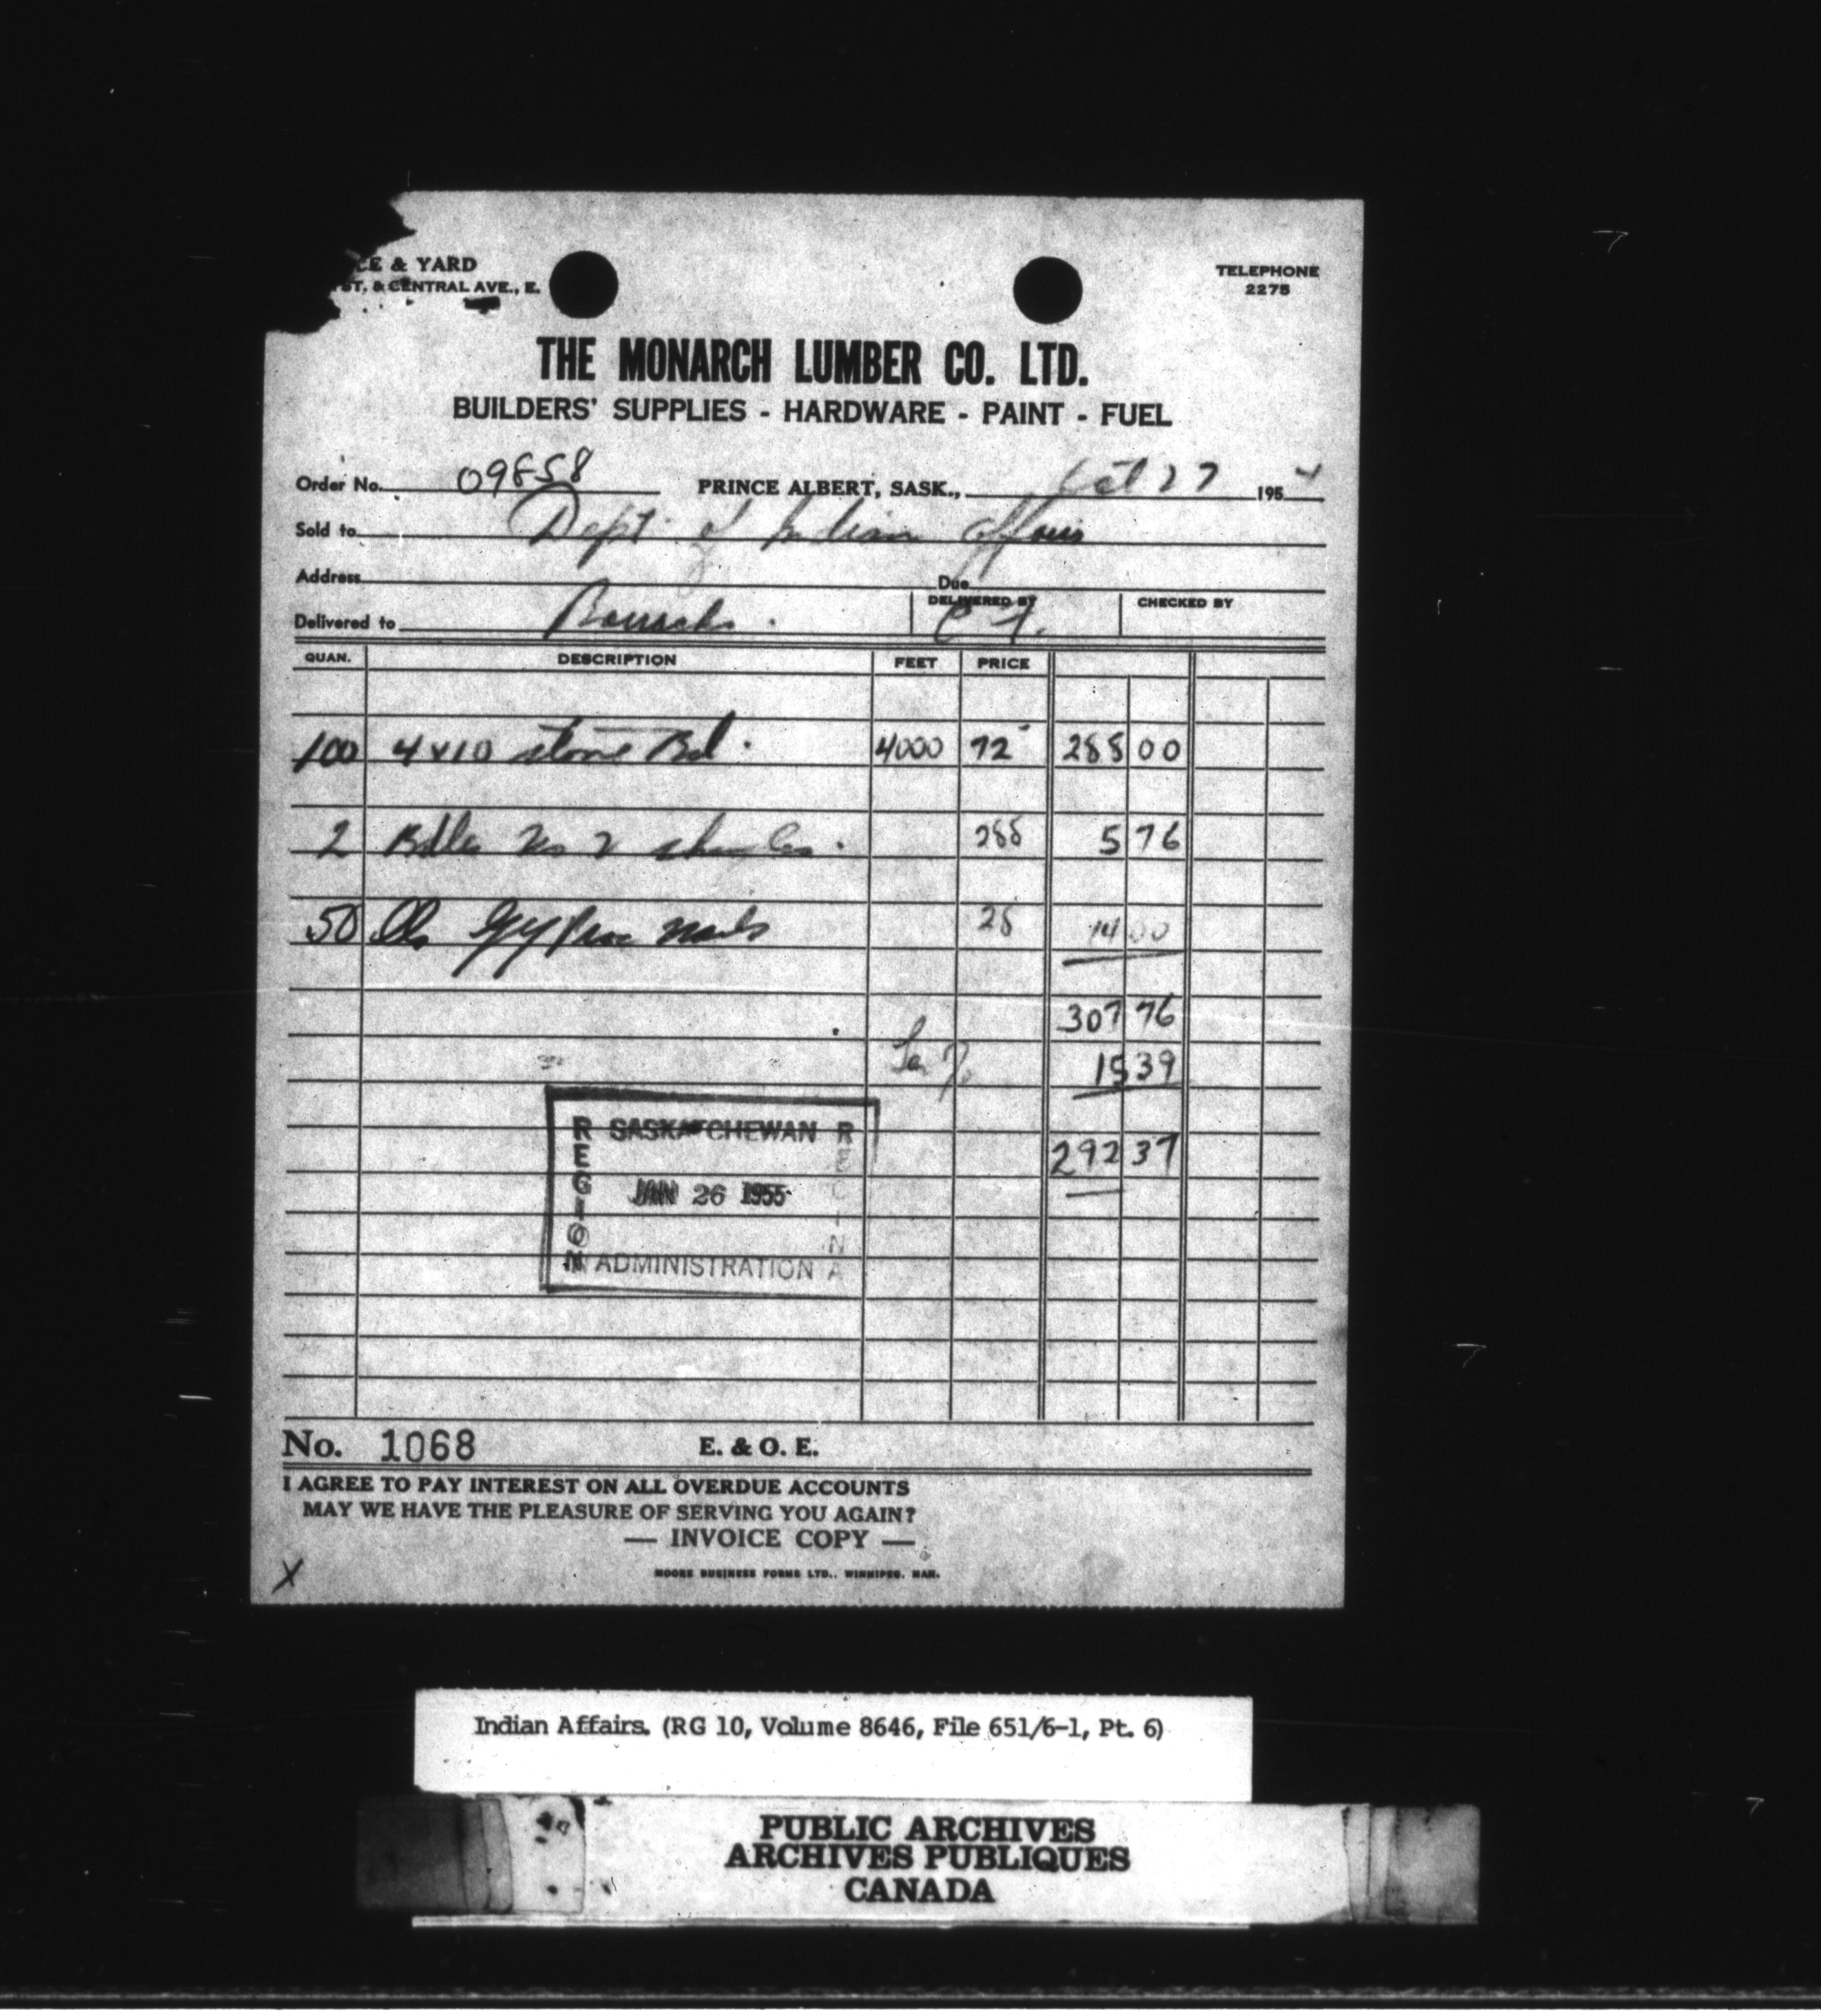 CE & YARD
ST. & CENTRAL AVE., E.
TELEPHONE
2275
THE MONARCH LUMBER CO. LTD.
BUILDERS' SUPPLIES - HARDWARE - PAINT - FUEL
Order No. 09858 PRINCE ALBERT, SASK., Oct 27 1954
Sold to Dept. of Indian Affairs
Address Due
Delivered to Barracks. DELIVERED BY CHECKED BY
QUAN. DESCRIPTION FEET PRICE
100 4 x 10 stone Bd. 4000 72 288 00
2 Bdls No 2 shingles. 288 5 76
50 lbs Gyproc nails 28 14 00
307 76
15 39
292 37
REGION SASKATCHEWAN REGINA
JAN 26 1955
ADMINISTRATION
No. 1068 E. & O. E.
I AGREE TO PAY INTEREST ON ALL OVERDUE ACCOUNTS
MAY WE HAVE THE PLEASURE OF SERVING YOU AGAIN?
— INVOICE COPY —
MOORE BUSINESS FORMS LTD., WINNIPEG, MAN.
X
Indian Affairs. (RG 10, Volume 8646, File 651/6-1, Pt. 6)
PUBLIC ARCHIVES
ARCHIVES PUBLIQUES
CANADA